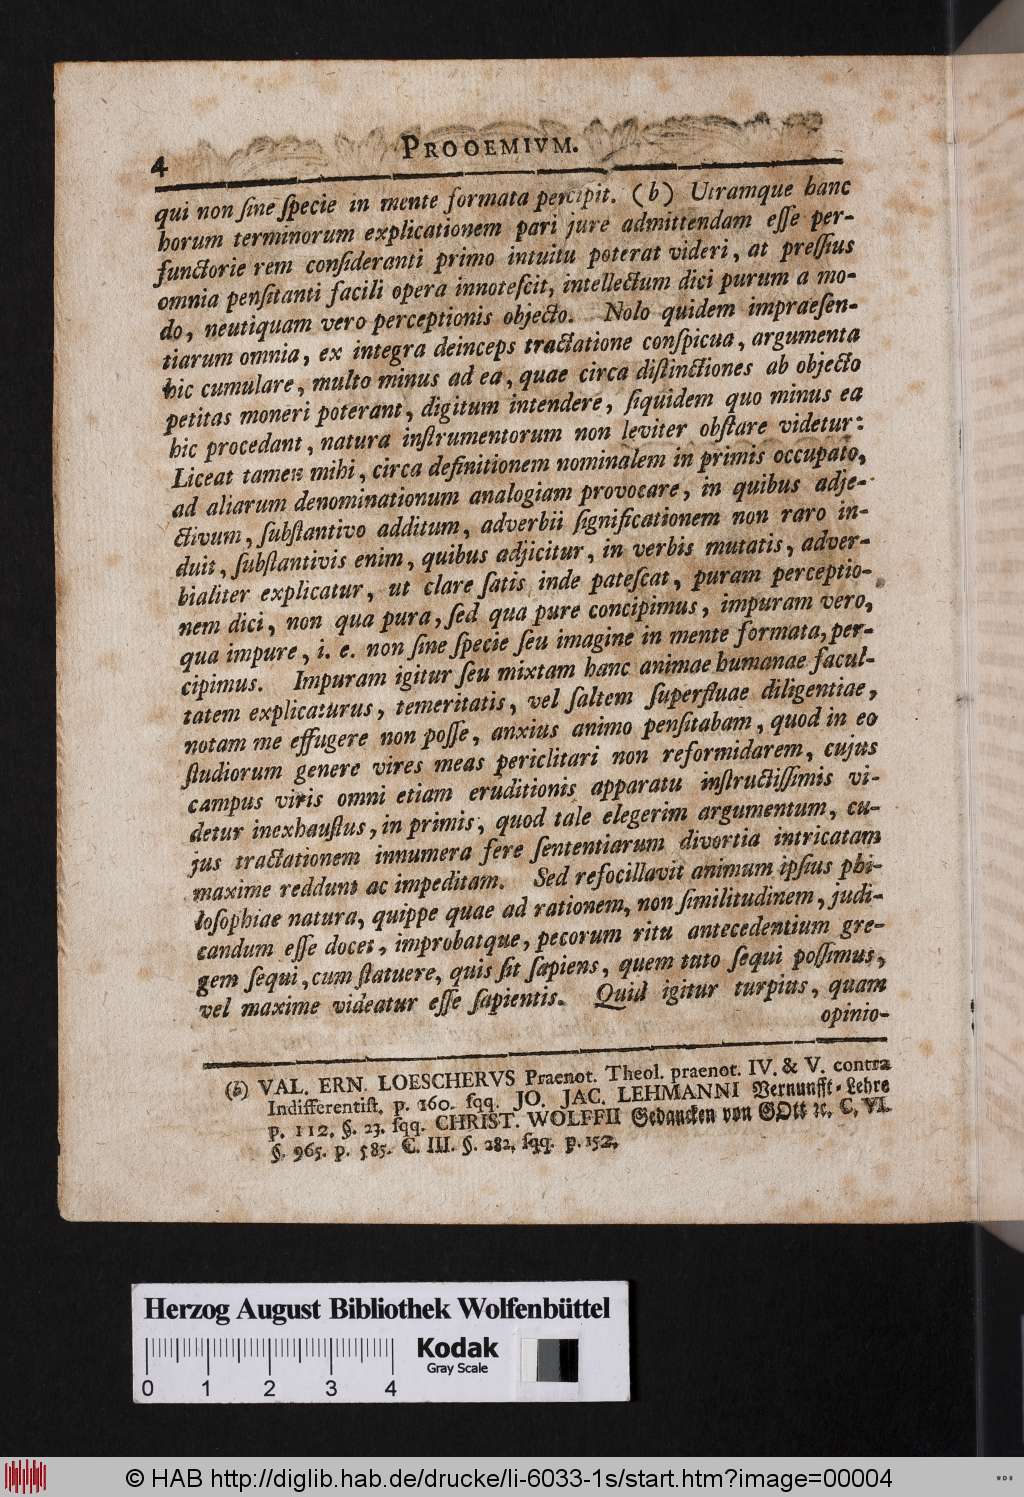 4 PROOEMIVM.
qui non ſine ſpecie in mente formata percipit. (b) Utramque hanc
horum terminorum explicationem pari jure admittendam eſſe per-
functorie rem conſideranti primo intuitu poterat videri, at preſſius
omnia penſitanti facili opera innoteſcit, intellectum dici purum a mo-
do, neutiquam vero perceptionis objecto. Nolo quidem impraeſen-
tiarum omnia, ex integra deinceps tractatione conſpicua, argumenta
hic cumulare, multo minus ad ea, quae circa diſtinctiones ab objecto
petitas moneri poterant, digitum intendere, ſiquidem quo minus ea
hic procedant, natura inſtrumentorum non leviter obſtare videtur:
Liceat tamen mihi, circa definitionem nominalem in primis occupato,
ad aliarum denominationum analogiam provocare, in quibus adje-
ctivum, ſubſtantivo additum, adverbii ſignificationem non raro in-
duit, ſubſtantivis enim, quibus adjicitur, in verbis mutatis, adver-
bialiter explicatur, ut clare ſatis inde pateſcat, puram perceptio-
nem dici, non qua pura, ſed qua pure concipimus, impuram vero,
qua impure, i. e. non ſine ſpecie ſeu imagine in mente formata, per-
cipimus. Impuram igitur ſeu mixtam hanc animae humanae facul-
tatem explicaturus, temeritatis, vel ſaltem ſuperfluae diligentiae,
notam me effugere non poſſe, anxius animo penſitabam, quod in eo
ſtudiorum genere vires meas periclitari non reformidarem, cujus
campus viris omni etiam eruditionis apparatu inſtructiſſimis vi-
detur inexhauſtus, in primis, quod tale elegerim argumentum, cu-
jus tractationem innumera fere ſententiarum divortia intricatam
maxime reddunt ac impeditam. Sed refocillavit animum ipſius phi-
loſophiae natura, quippe quae ad rationem, non ſimilitudinem, judi-
candum eſſe docet, improbatque, pecorum ritu antecedentium gre-
gem ſequi, cum ſtatuere, quis ſit ſapiens, quem tuto ſequi poſſimus,
vel maxime videatur eſſe ſapientis. Quid igitur turpius, quam
opinio-
(b) VAL. ERN. LOESCHERVS Praenot. Theol. praenot. IV. & V. contra
Indifferentiſt. p. 160. ſqq. JO. JAC. LEHMANNI Vernunfft-Lehre
p. 112. §. 23. ſqq. CHRIST. WOLFFII Gedancken von GOtt ꝛc. C. VI.
§. 965. p. 585. C. III. §. 282. ſqq. p. 152.
Herzog August Bibliothek Wolfenbüttel
Kodak
Gray Scale
0 1 2 3 4
© HAB http://diglib.hab.de/drucke/li-6033-1s/start.htm?image=00004
WDB